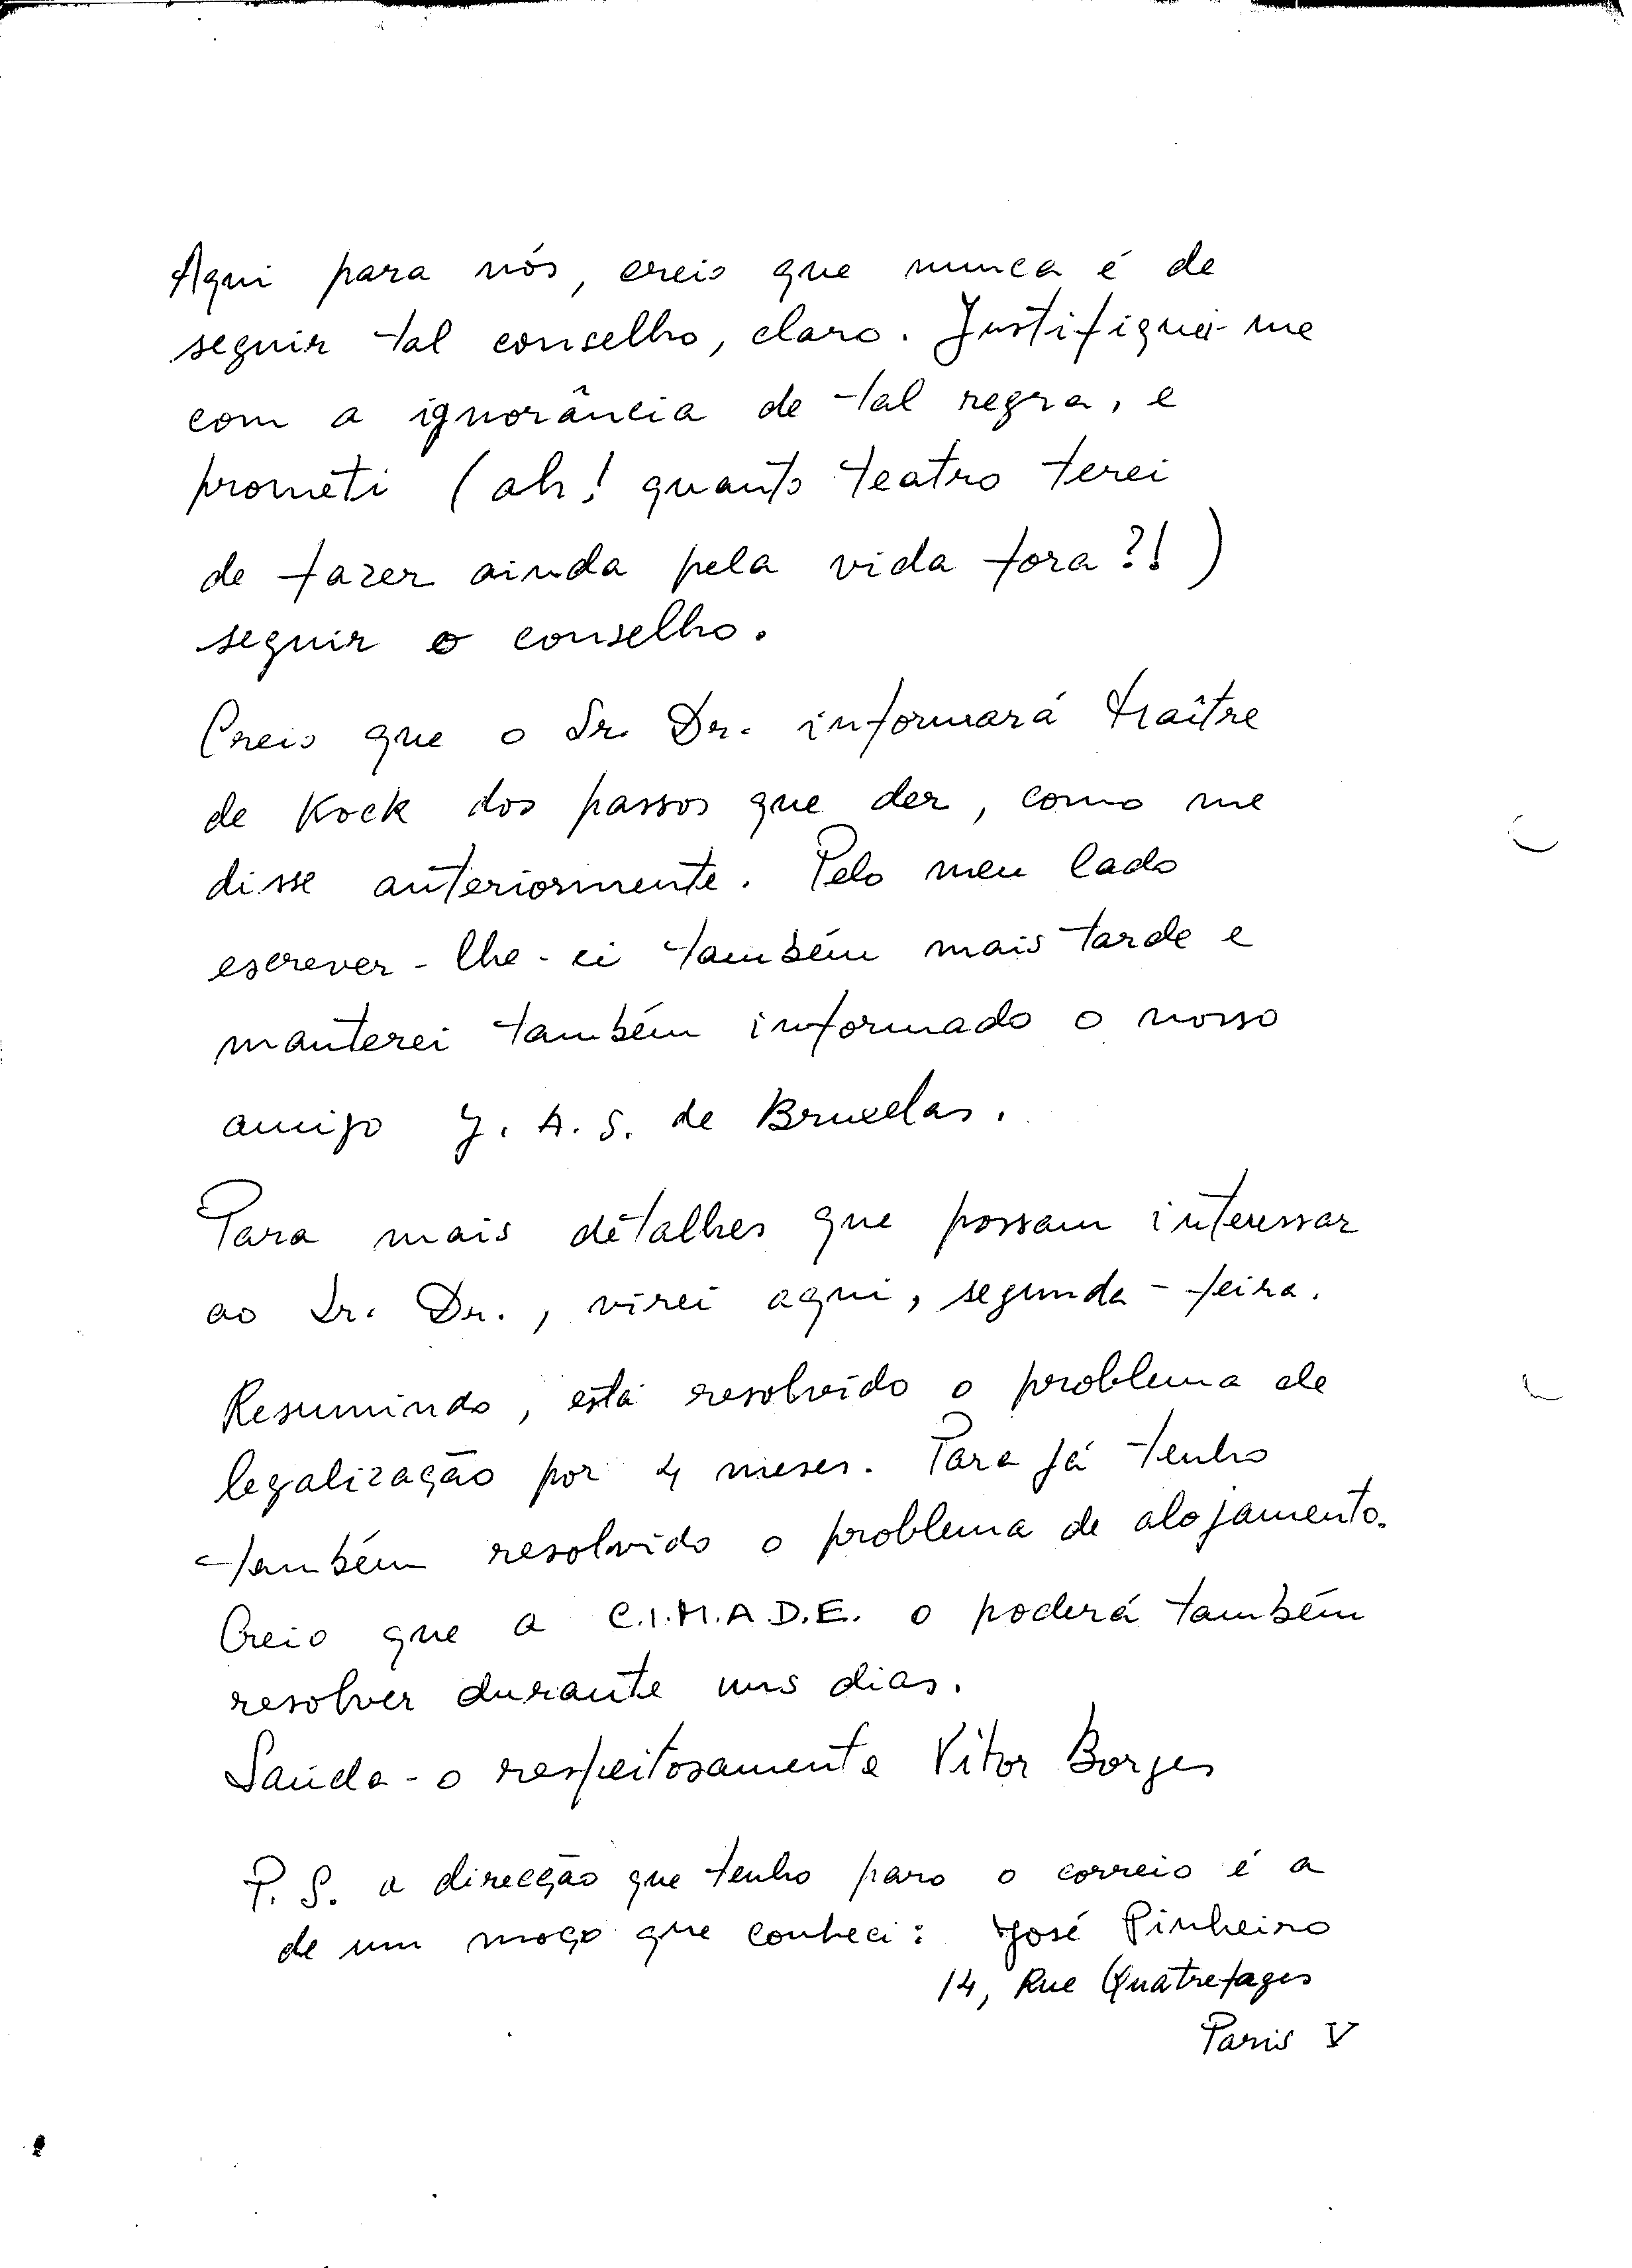 Aqui para nós, creio que nunca é de
seguir tal conselho, claro. Justifiquei-me
com a ignorância de tal regra, e
prometi (ah! quanto teatro terei
de fazer ainda pela vida fora?!)
seguir o conselho.
Creio que o Sr. Dr. informará Maître
de Kock dos passos que der, como me
disse anteriormente. Pelo meu lado
escrever-lhe-ei também mais tarde e
manterei também informado o nosso
amigo J. A. S. de Bruxelas.
Para mais detalhes que possam interessar
ao Sr. Dr., virei aqui, segunda-feira.
Resumindo, está resolvido o problema de
legalização por 4 meses. Para já tenho
também resolvido o problema de alojamento.
Creio que a C.I.M.A D.E. o poderá também
resolver durante uns dias.
Saúda-o respeitosamente Vitor Borges
P. S. a direcção que tenho para o correio é a
de um moço que conheci: José Pinheiro
14, Rue Quatrefages
Paris V